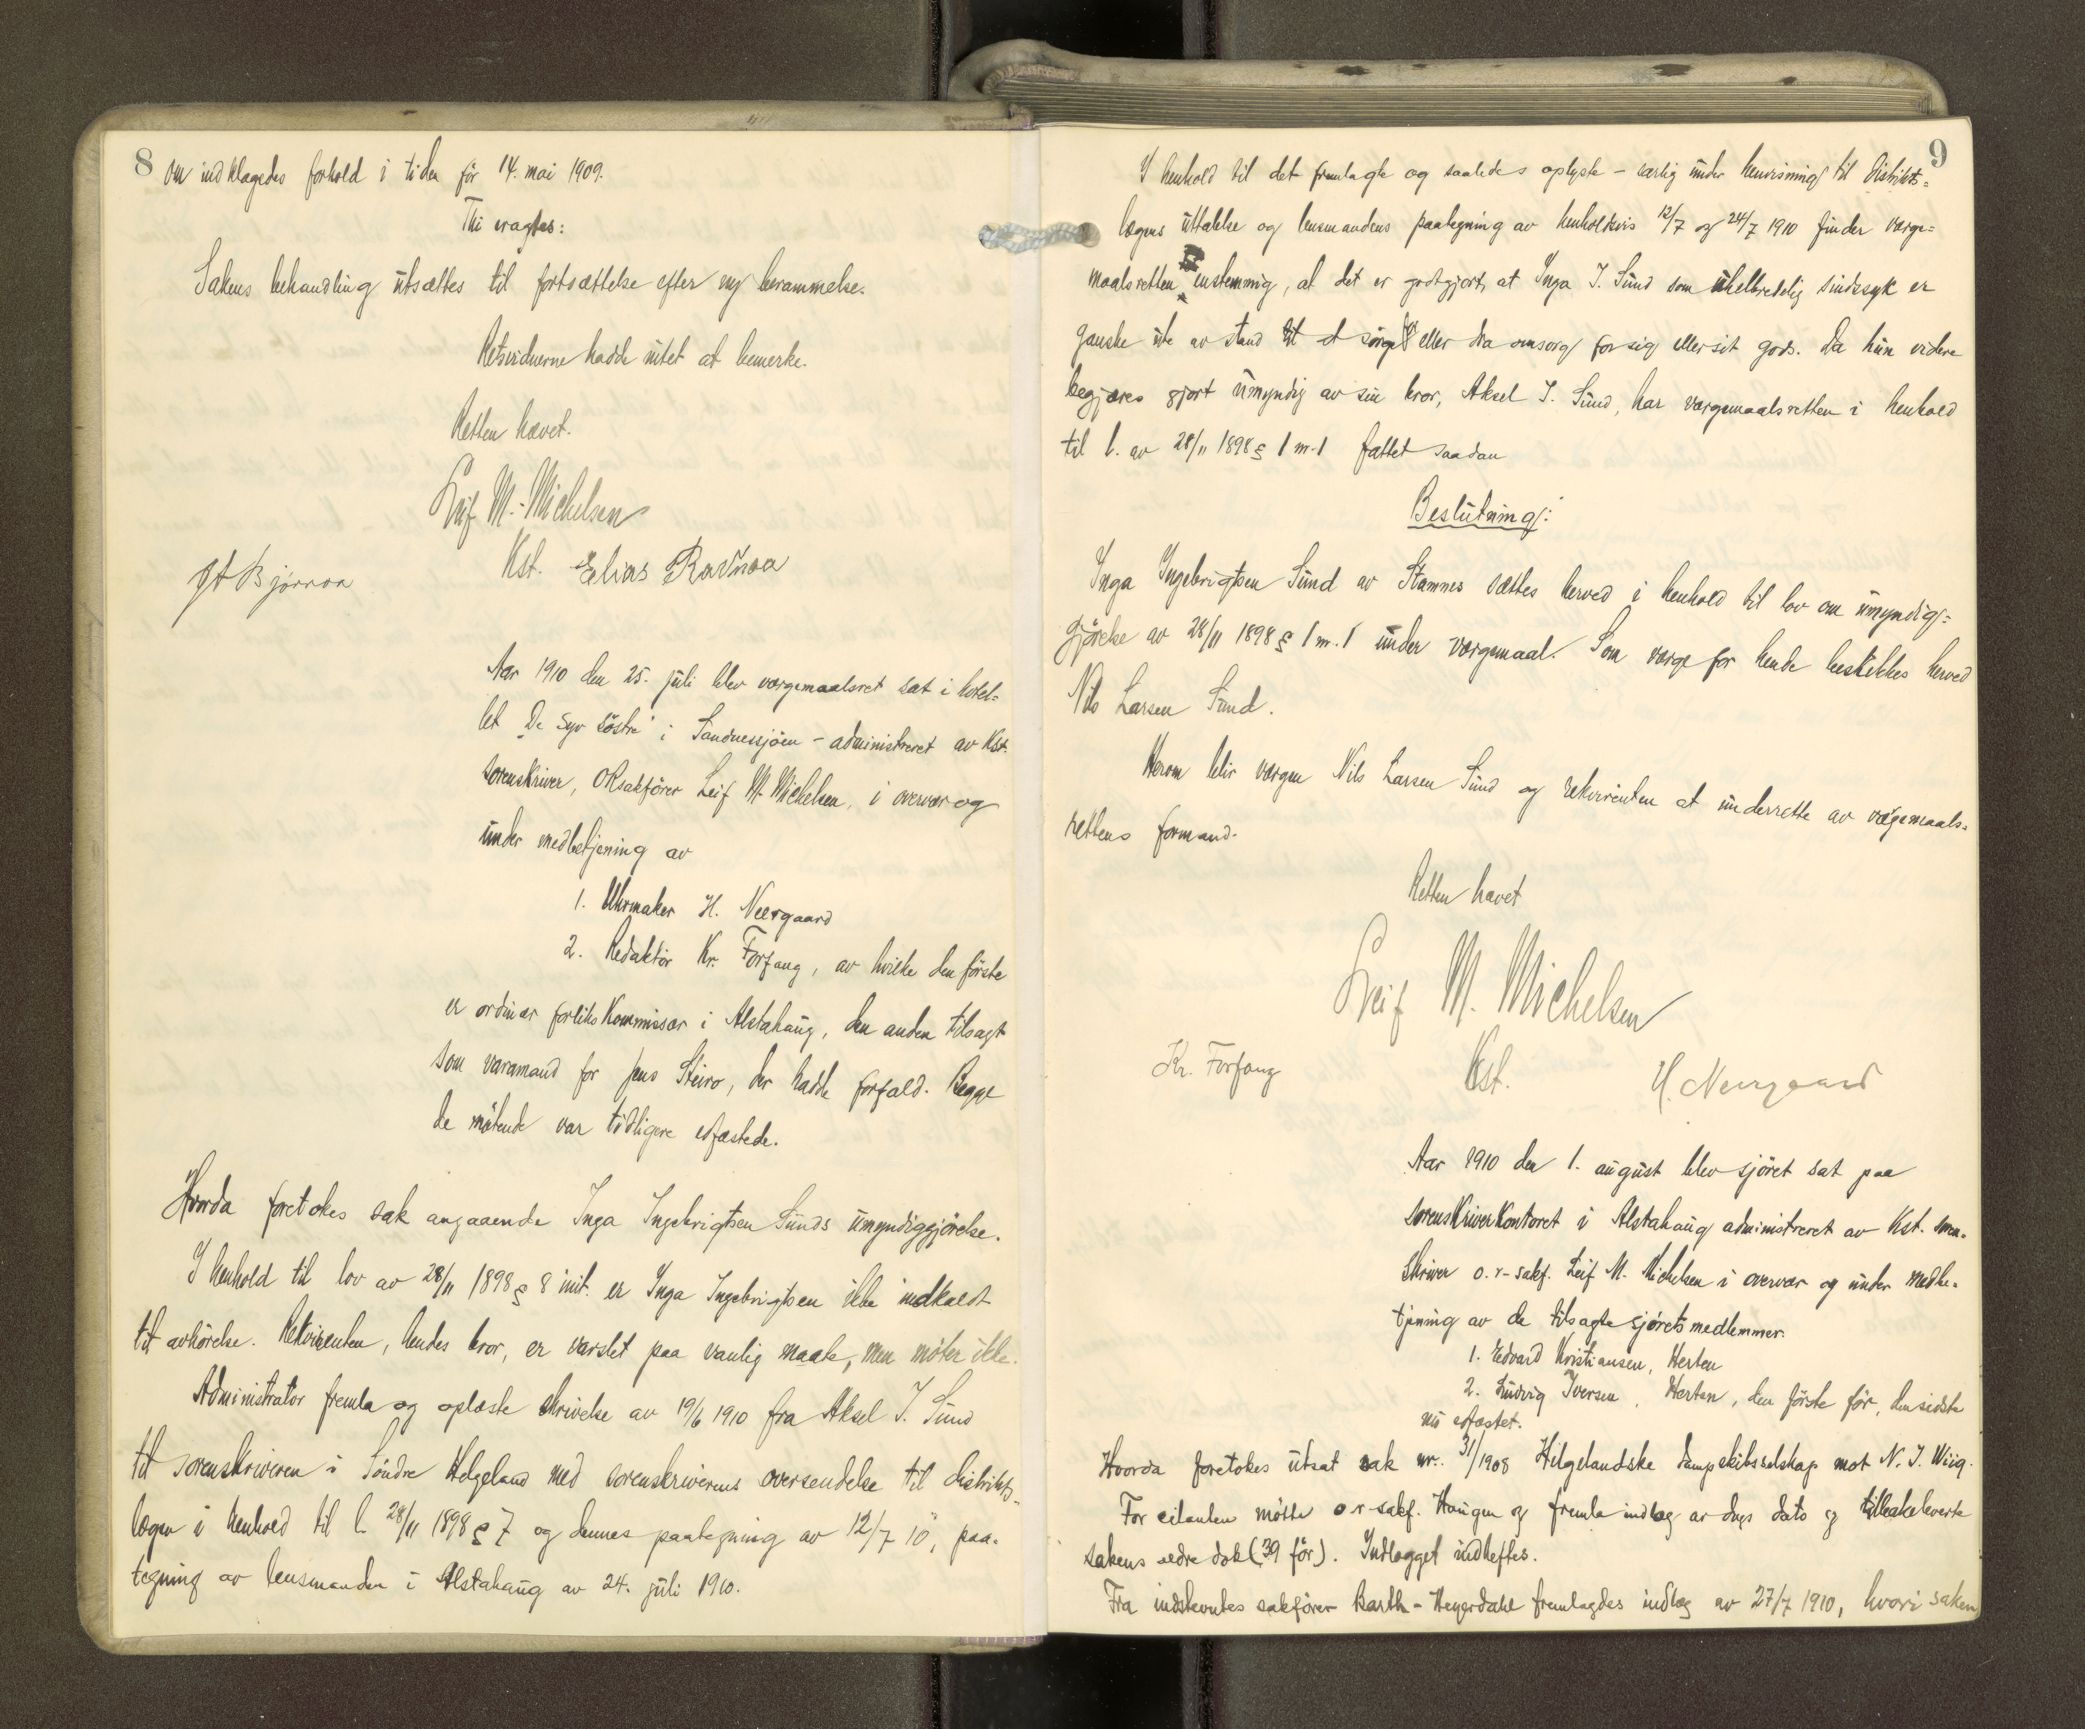 8
om indklagedes forhold i tiden før 14. mai 1909.
Thi eragtes:
Sakens behandling utsættes til fortsættelse efter ny berammelse.
Retsvidnerne hadde intet at bemerke.
Retten hævet.
Leif M. Michelsen
Kst. Elias Ravnaa
Aar 1910 den 25. juli blev vergemaalsret sat i hotel=
let "De syv søstre" i Sandnessjøen - administreret av kst.
sorenskriver, oRsakfører Leif M. Michelsen, i overvær og
under medbetjening av
1. Uhrmaker H. Neergaard
2. Redaktør Kr. Forfang, av hvilke den første
er ordinær forlikskommissær i Alstahaug, den anden tilsagt
som varamand for Jens Steiro, der hadde forfald. Begge
de møtende var tidligere edfæstede.
Hvorda foretokes sak angaaende Inga Ingebrigtsen Sunds umyndiggjørelse.
I henhold til lov av 28/11 1898 § 8 init. er Inga Ingebrigtsen ikke indkaldt
til avhørelse. Rekvirenten, hendes bror, er varslet paa vanlig maate, men møter ikke.
Administrator fremla og oplæste skrivelse av 19/6 1910 fra Aksel I. Sund
til sorenskriveren i Søndre Helgeland med sorenskriverens oversendelse til distrikts=
lægen i henhold til l. 28/11 1898 § 7 og dennes paategning av 12/7 10, paa=
tegning av lensmanden i Alstahaug av 24. juli 1910.
9
I henhold til det fremlagte og saaledes oplyste - særlig under henvisning til distrikts=
lægens uttalelse og lensmandens paategning av henholdsvis 12/7 og 24/7 1910 finder verge=
maalsretten enstemmig, at det er godtgjort, at Inga I. Sund som uhelbredelig sindssyk er
ganske ute av stand til at sørge eller dra omsorg for sig eller sit gods. Da hun videre
begjæres gjort umyndig av sin bror, Aksel I. Sund, har vergemaalsretten i henhold
til l. av 28/11 1898 § 1 m. 1 fattet saadan
Beslutning:
Inga Ingebrigtsen Sund av Stamnes sættes herved i henhold til lov om umyndig=
gjørelse av 28/11 1898 § 1 m. 1 under vergemaal. Som verge for hende beskikkes herved
Nils Larsen Sund.
Herom blir vergen Nils Larsen Sund og rekvirenten at underrette av vergemaals=
rettens formand.
Retten hævet
Leif M. Michelsen
Kr. Forfang Kst. H. Neergaard
Aar 1910 den 1. august blev sjøret sat paa
sorenskriverkontoret i Alstahaug administreret av Kst. soren=
skriver o.r-sakf. Leif M. Michelsen i overvær og under medbe=
tjening av de tilsagte sjøretsmedlemmer.
1. Edvard Kristiansen, Herten
2. Ludvig Iversen, Herten, den første før, den sidste
nu edfæstet.
Hvorda foretokes utsat sak nr. 31/1908 Helgelandske dampskibsselskap mot N. J. Wiig.
For citanten møtte o.r-sakf. Haugen og fremla indlæg av dags dato og tilbakeleverte
sakens ældre dok (39 før). Indlægget indheftes.
Fra indstevntes sakfører Barth-Heyerdahl fremlagdes indlæg av 27/7 1910, hvori saken